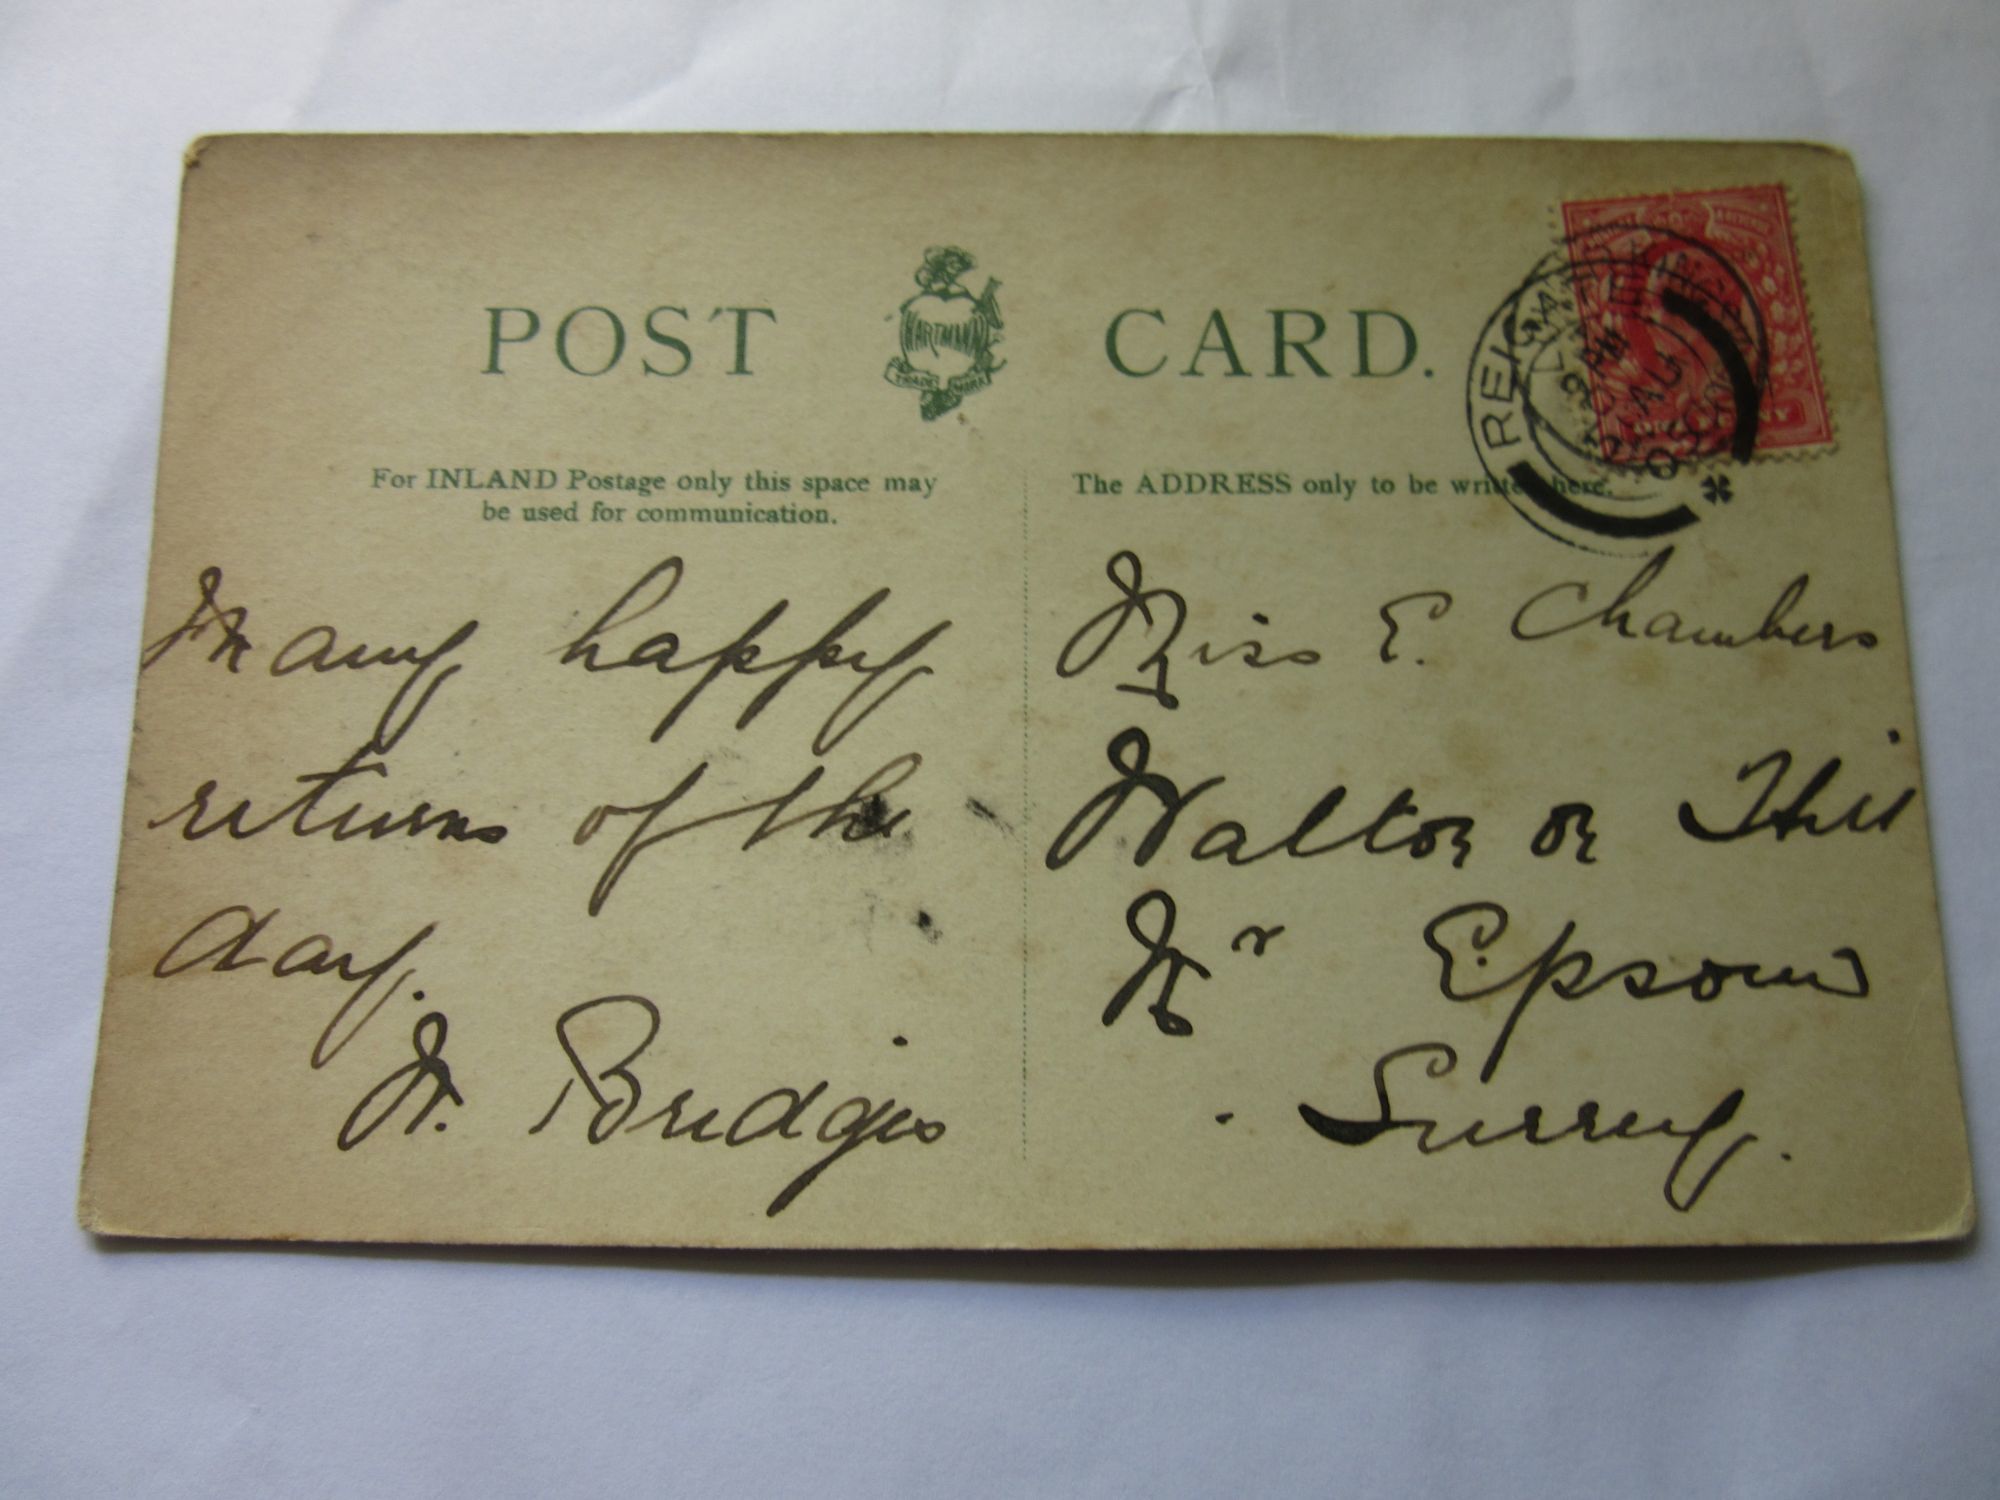 POST CARD.
HARTMANN
TRADE MARK
For INLAND Postage only this space may
be used for communication.
The ADDRESS only to be written here.
REIG
PENNY
Many happy
returns of the
day.
W. Bridges
Miss E. Chambers
Walton on Hill
Nr Epsom
Surrey.